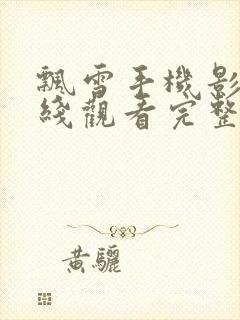 飄雪手機影
綫觀看完整
黃驪